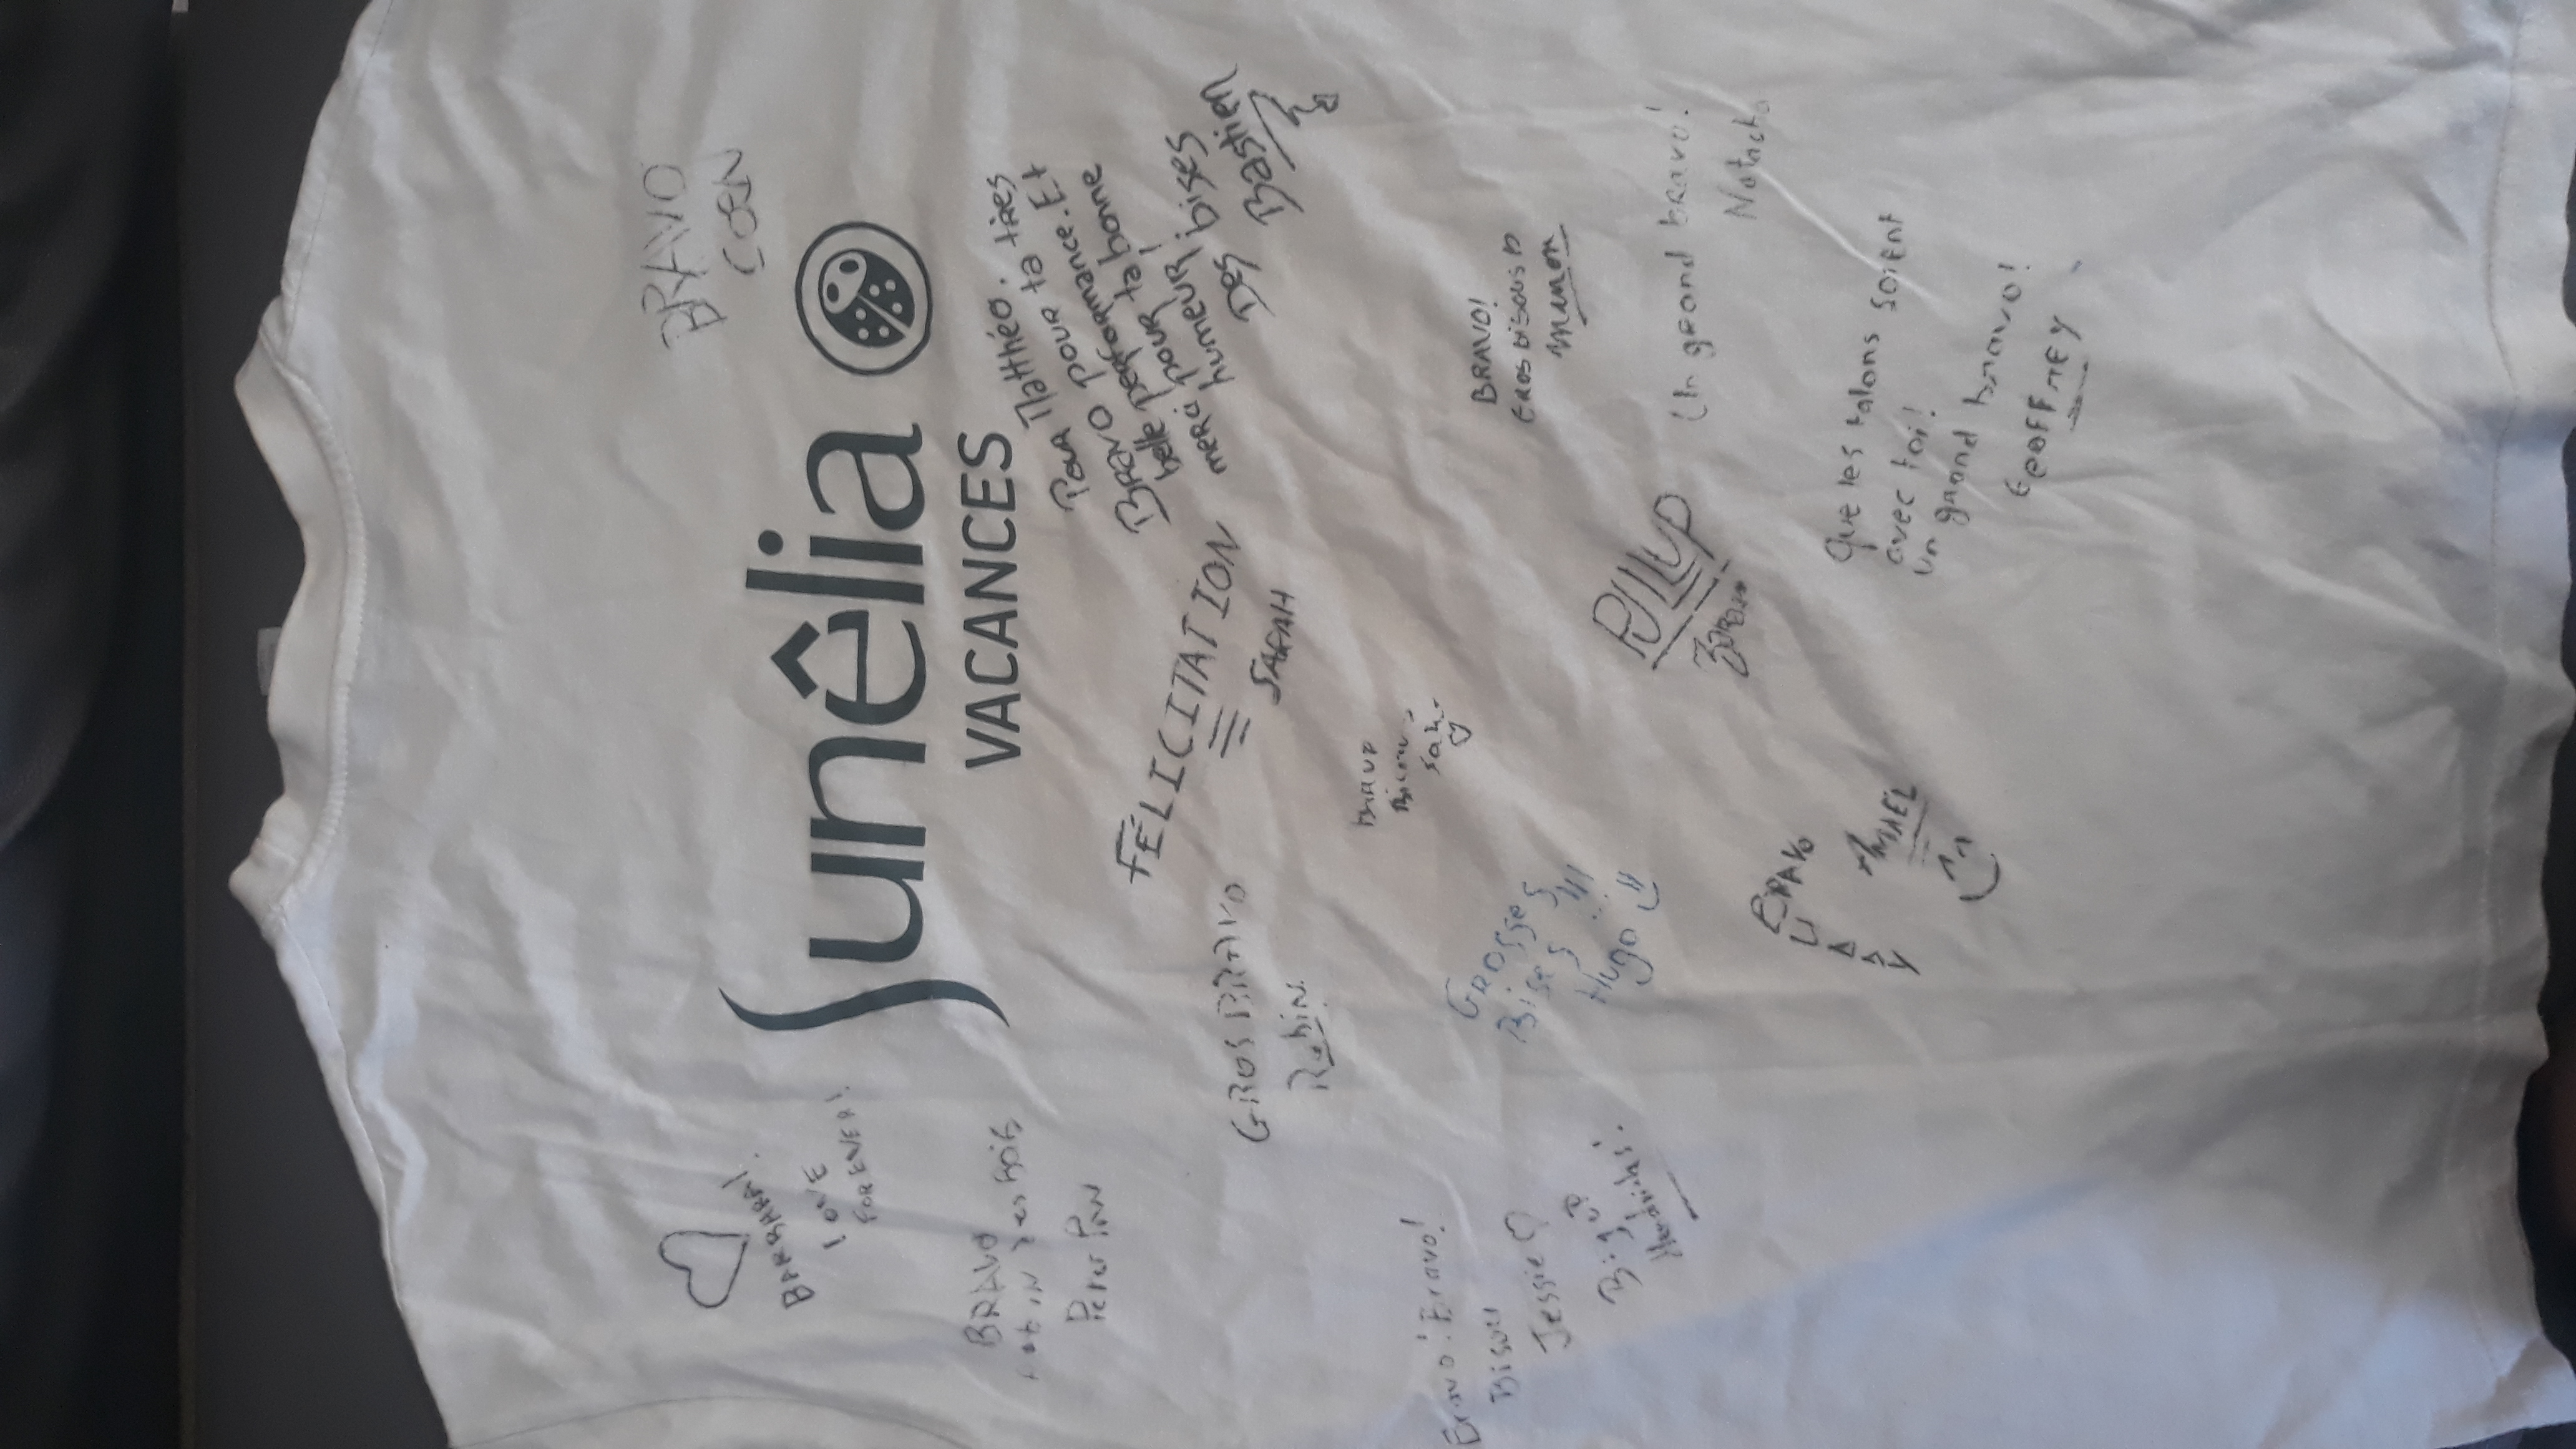 BRAVO
COEN
BARBARA!
LOVE
FOREVER!
Sunêlia
VACANCES
BRAVO
des bois
Peter Pan
Pour Matthéo.
Bravo pour ta très
belle performance. Et
merci pour ta bonne
humeur!
Des bises
Bastien
FÉLICITATION
SARAH
GROS BRAVO
Robin
Bravo! Bravo!
Bisou
Jessie
Big up
Hendricks!
GROSSES
Bises !!!
Hugo
BRAVO!
GROS BISOUS
Manon
PULLUP
Un grand bravo!
Natacha
BRAVO
AMAEL
Que les talons soient
avec toi!
Un grand bravo!
GEOFFREY